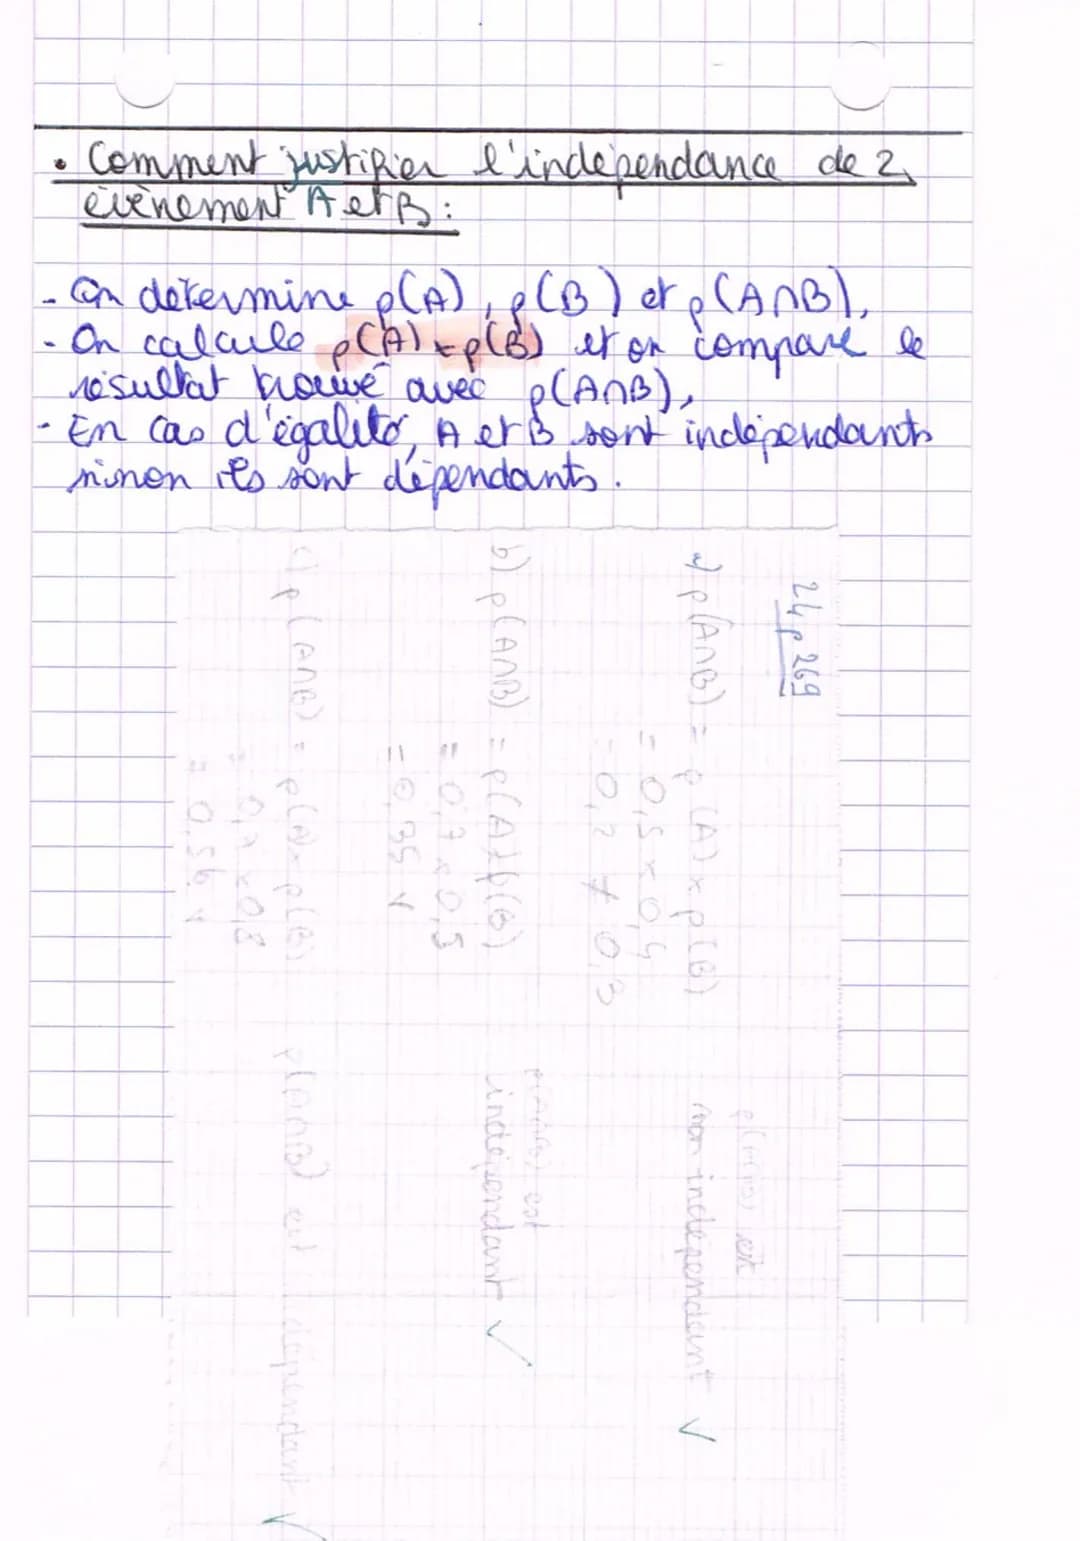 • Comment justifier l'indépendance de 2
évènement A et B :
- On détermine p(A), p(B) et p(A∩B),
- On calcule p(A) × p(B) et on compare le
résultat trouvé avec p(A∩B),
- En cas d'égalité, A et B sont indépendants
sinon ils sont dépendants.
24 p 269
a) p(A∩B) = p(A) × p(B)
= 0,5 × 0,4
= 0,2 ≠ 0,3
p(A∩B) est
non indépendant ✓
b) p(A∩B) = p(A) × p(B)
= 0,7 × 0,5
= 0,35 ✓
p(A∩B) est
indépendant ✓
c) p(A∩B) = p(A) × p(B)
= 0,7 × 0,8
= 0,56 ✓
p(A∩B) est indépendant ✓